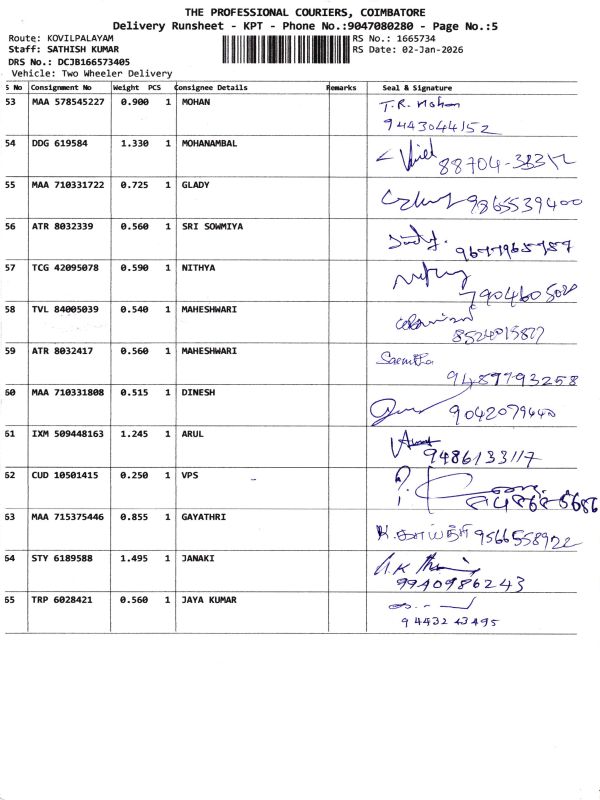 THE PROFESSIONAL COURIERS, COIMBATORE
Delivery Runsheet - KPT - Phone No.:9047080280 - Page No.:5
Route: KOVILPALAYAM RS No.: 1665734
Staff: SATHISH KUMAR RS Date: 02-Jan-2026
DRS No.: DCJB166573405
Vehicle: Two Wheeler Delivery
S No Consignment No Weight PCS Consignee Details Remarks Seal & Signature
53 MAA 578545227 0.900 1 MOHAN T.R. Mohan
9443044152
54 DDG 619584 1.330 1 MOHANAMBAL
55 MAA 710331722 0.725 1 GLADY
9865539400
56 ATR 8032339 0.560 1 SRI SOWMIYA
57 TCG 42095078 0.590 1 NITHYA
58 TVL 84005039 0.540 1 MAHESHWARI
59 ATR 8032417 0.560 1 MAHESHWARI
9489793258
60 MAA 710331808 0.515 1 DINESH
61 IXM 509448163 1.245 1 ARUL
9486133117
62 CUD 10501415 0.250 1 VPS
63 MAA 715375446 0.855 1 GAYATHRI
64 STY 6189588 1.495 1 JANAKI
9940986243
65 TRP 6028421 0.560 1 JAYA KUMAR
9443243495